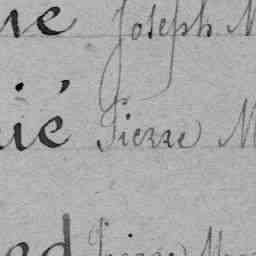 ue Joseph M
ié Pierre M
ed Pierre M